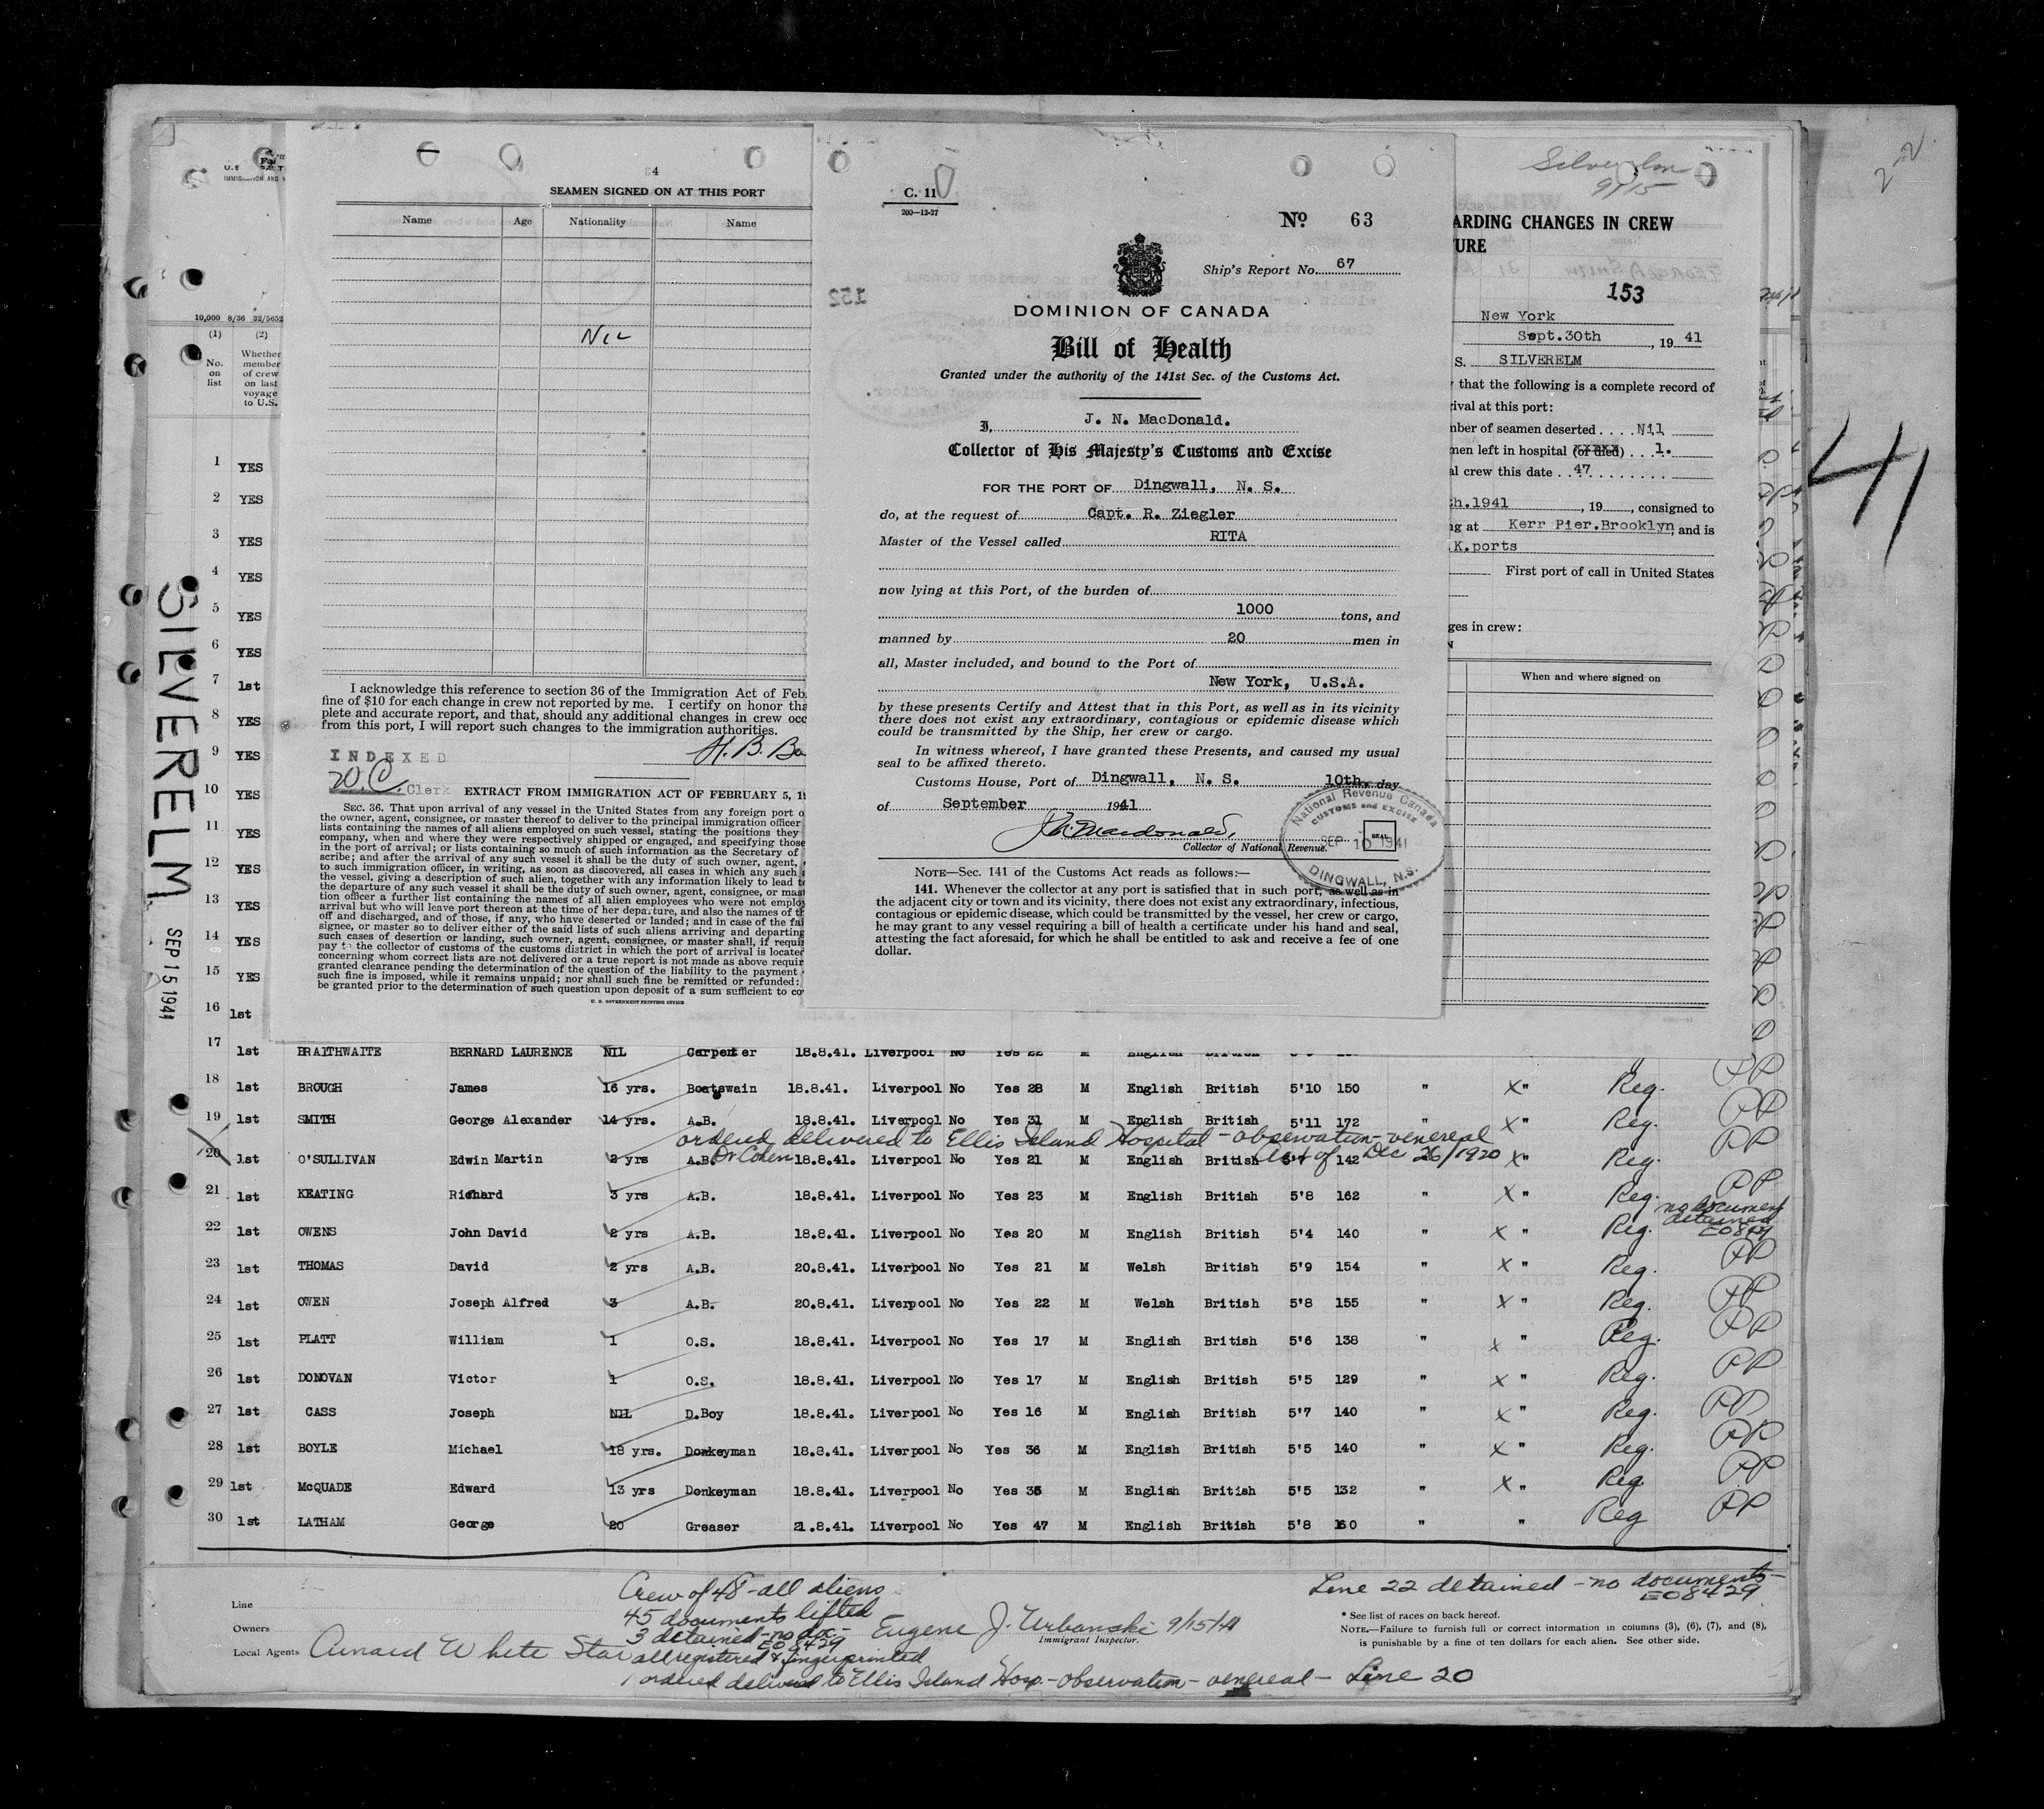 4
SEAMEN SIGNED ON AT THIS PORT
Name Age Nationality Name
NIL
I acknowledge this reference to section 36 of the Immigration Act of Feb
fine of $10 for each change in crew not reported by me. I certify on honor tha
plete and accurate report, and that, should any additional changes in crew occ
from this port, I will report such changes to the immigration authorities.
H. B. Ba
INDEXED
Clerk
EXTRACT FROM IMMIGRATION ACT OF FEBRUARY 5, 19
SEC. 36. That upon arrival of any vessel in the United States from any foreign port o
the owner, agent, consignee, or master thereof to deliver to the principal immigration officer
lists containing the names of all aliens employed on such vessel, stating the positions they
company, when and where they were respectively shipped or engaged, and specifying those
in the port of arrival; or lists containing so much of such information as the Secretary of
scribe; and after the arrival of any such vessel it shall be the duty of such owner, agent,
to such immigration officer, in writing, as soon as discovered, all cases in which any such
the vessel, giving a description of such alien, together with any information likely to lead t
the departure of any such vessel it shall be the duty of such owner, agent, consignee, or mas
tion officer a further list containing the names of all alien employees who were not emplo
arrival but who will leave port thereon at the time of her departure, and also the names of th
off and discharged, and of those, if any, who have deserted or landed; and in case of the fai
signee, or master so to deliver either of the said lists of such aliens arriving and departing
such cases of desertion or landing, such owner, agent, consignee, or master shall, if requir
pay to the collector of customs of the customs district in which the port of arrival is locate
concerning whom correct lists are not delivered or a true report is not made as above requir
granted clearance pending the determination of the question of the liability to the payment
such fine is imposed, while it remains unpaid; nor shall such fine be remitted or refunded:
be granted prior to the determination of such question upon deposit of a sum sufficient to co
U. S. GOVERNMENT PRINTING OFFICE
C. 11
200—12-27
No 63
Ship's Report No. 67
DOMINION OF CANADA
Bill of Health
Granted under the authority of the 141st Sec. of the Customs Act.
I, J. N. MacDonald.
Collector of His Majesty's Customs and Excise
FOR THE PORT OF Dingwall, N. S.
do, at the request of Capt. R. Ziegler
Master of the Vessel called RITA
now lying at this Port, of the burden of
1000 tons, and
manned by 20 men in
all, Master included, and bound to the Port of
New York, U.S.A.
by these presents Certify and Attest that in this Port, as well as in its vicinity
there does not exist any extraordinary, contagious or epidemic disease which
could be transmitted by the Ship, her crew or cargo.
In witness whereof, I have granted these Presents, and caused my usual
seal to be affixed thereto.
Customs House, Port of Dingwall, N. S. 10th day
of September 1941
J.N. Macdonald,
Collector of National Revenue.
National Revenue Canada
CUSTOMS and EXCISE
SEP 10 1941
SEAL
DINGWALL, N.S.
NOTE—Sec. 141 of the Customs Act reads as follows:—
141. Whenever the collector at any port is satisfied that in such port, as well as in
the adjacent city or town and its vicinity, there does not exist any extraordinary, infectious,
contagious or epidemic disease, which could be transmitted by the vessel, her crew or cargo,
he may grant to any vessel requiring a bill of health a certificate under his hand and seal,
attesting the fact aforesaid, for which he shall be entitled to ask and receive a fee of one
dollar.
152
Silverelm
9/15
ARDING CHANGES IN CREW
URE
153
New York
Sept.30th , 19 41
S. SILVERELM
that the following is a complete record of
ival at this port:
ber of seamen deserted .... Nil
men left in hospital (or died) ... 1.
al crew this date .. 47 ........
ch.1941 , 19 , consigned to
ng at Kerr Pier.Brooklyn, and is
K.ports
First port of call in United States
ges in crew:
When and where signed on
41
SILVERELM
SEP 15 1941
10,000 8/36 32/5652
(1) (2)
No. on list
Whether member of crew on last voyage to U.S.
1 YES
2 YES
3 YES
4 YES
5 YES
6 YES
7 1st
8 YES
9 YES
10 YES
11 YES
12 YES
13 YES
14 YES
15 YES
16 1st
17 1st BRAITHWAITE BERNARD LAURENCE NIL Carpenter 18.8.41. Liverpool No Yes 22 M English British
18 1st BROUGH James 16 yrs. Boatswain 18.8.41. Liverpool No Yes 28 M English British 5'10 150 " X " Reg. PP
19 1st SMITH George Alexander 14 yrs. A.B. 18.8.41. Liverpool No Yes 31 M English British 5'11 172 " X " Reg. PP
ordered delivered to Ellis Island Hospital - observation - venereal
Dr Cohen Act of Dec 26/1920
20 1st O'SULLIVAN Edwin Martin 2 yrs A.B. 18.8.41. Liverpool No Yes 21 M English British 5'7 142 X " Reg. PP
21 1st KEATING Richard 3 yrs A.B. 18.8.41. Liverpool No Yes 23 M English British 5'8 162 " X " Reg. PP
22 1st OWENS John David 2 yrs A.B. 18.8.41. Liverpool No Yes 20 M English British 5'4 140 " X " Reg. no document detained E08429
23 1st THOMAS David 2 yrs A.B. 20.8.41. Liverpool No Yes 21 M Welsh British 5'9 154 " X " Reg. PP
24 1st OWEN Joseph Alfred 3 A.B. 20.8.41. Liverpool No Yes 22 M Welsh British 5'8 155 " X " Reg. PP
25 1st PLATT William 1 O.S. 18.8.41. Liverpool No Yes 17 M English British 5'6 138 " X " Reg. PP
26 1st DONOVAN Victor 1 O.S. 18.8.41. Liverpool No Yes 17 M English British 5'5 129 " X " Reg. PP
27 1st CASS Joseph NIL D.Boy 18.8.41. Liverpool No Yes 16 M English British 5'7 140 " X " Reg. PP
28 1st BOYLE Michael 18 yrs. Donkeyman 18.8.41. Liverpool No Yes 36 M English British 5'5 140 " X " Reg. PP
29 1st McQUADE Edward 13 yrs Donkeyman 18.8.41. Liverpool No Yes 35 M English British 5'5 132 " X " Reg PP
30 1st LATHAM George 20 Greaser 21.8.41. Liverpool No Yes 47 M English British 5'8 160 " " Reg PP
Crew of 48 - all aliens
45 documents lifted
3 detained - no doc - E08429
all registered & fingerprinted
1 ordered delivered to Ellis Island Hosp. - observation - venereal - Line 20
Line
Owners
Local Agents Cunard White Star
Eugene J. Urbanski 9/15/41
Immigrant Inspector.
Line 22 detained - no documents - E08429
* See list of races on back hereof.
NOTE.—Failure to furnish full or correct information in columns (3), (6), (7), and (8),
is punishable by a fine of ten dollars for each alien. See other side.